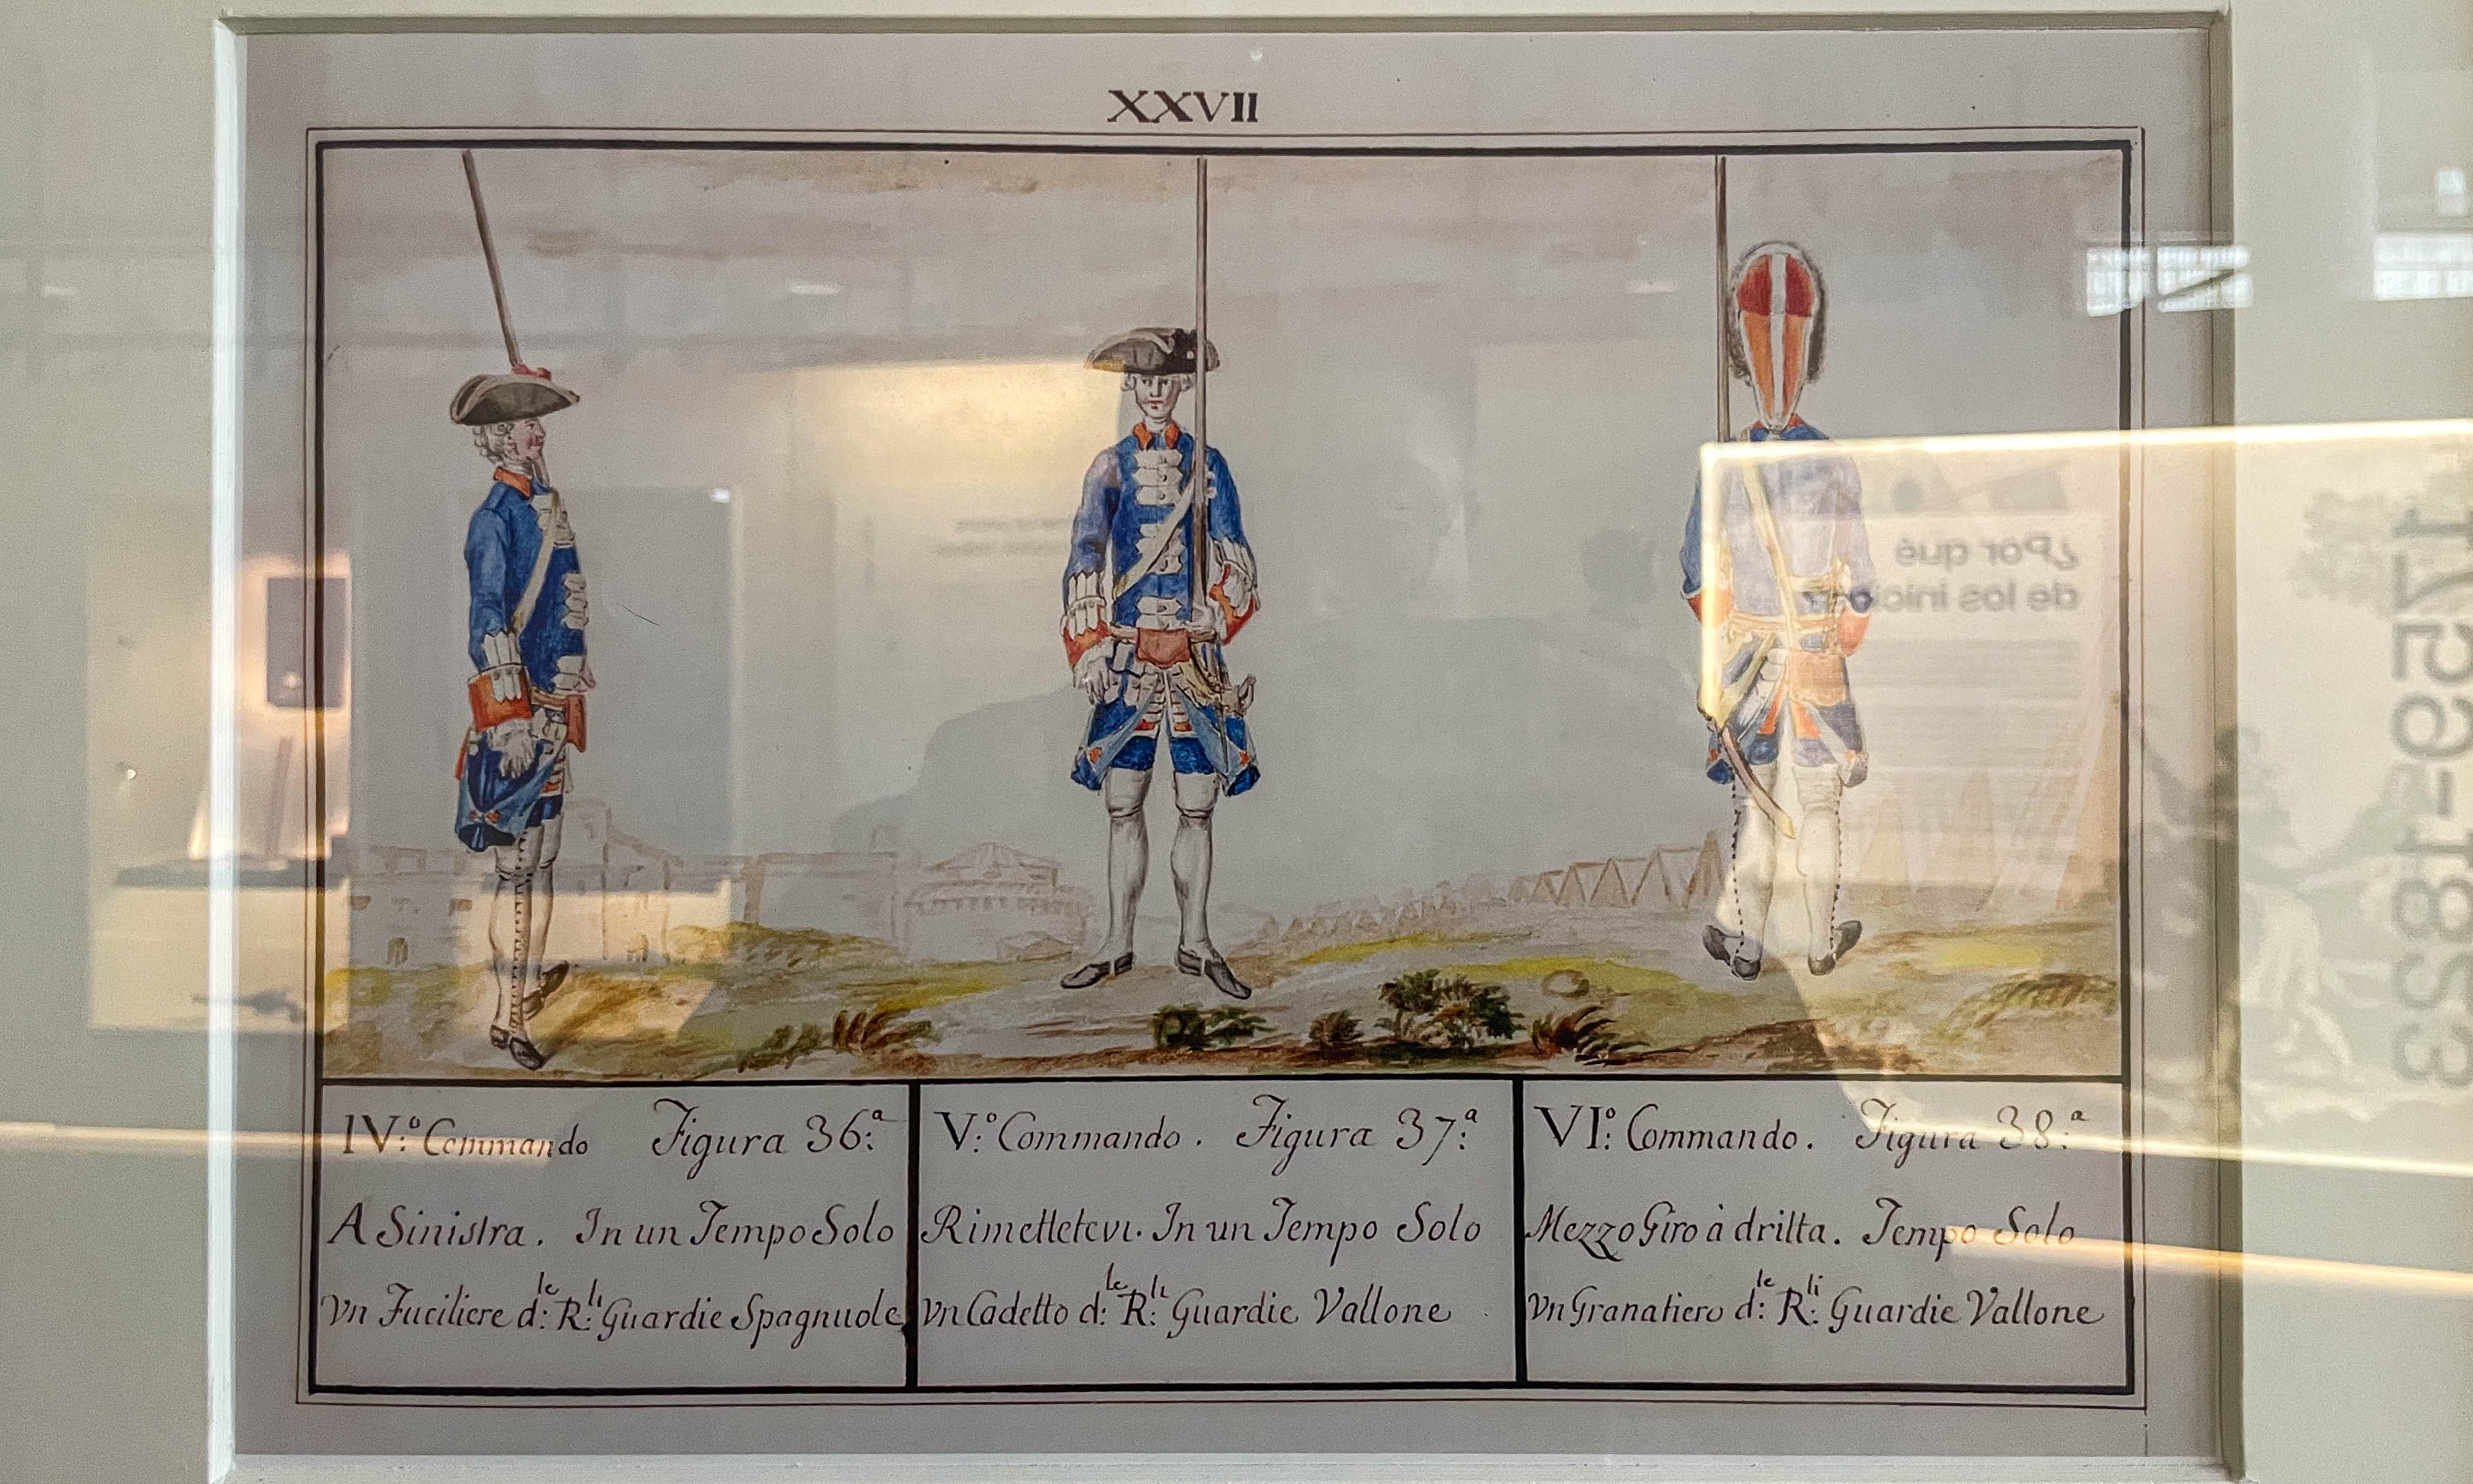 XXVII
IV:º Commando Figura 36:ª
A Sinistra. In un Tempo Solo
Vn Fuciliere d:le R:li Guardie Spagnuole
V:º Commando. Figura 37:ª
Rimettetevi. In un Tempo Solo
Vn Cadetto d:le R:li Guardie Vallone
VI:º Commando. Figura 38:ª
Mezzo Giro à dritta. Tempo Solo
Vn Granatiero d:le R:li Guardie Vallone
¿Por qué
de los inicios
1759-1823